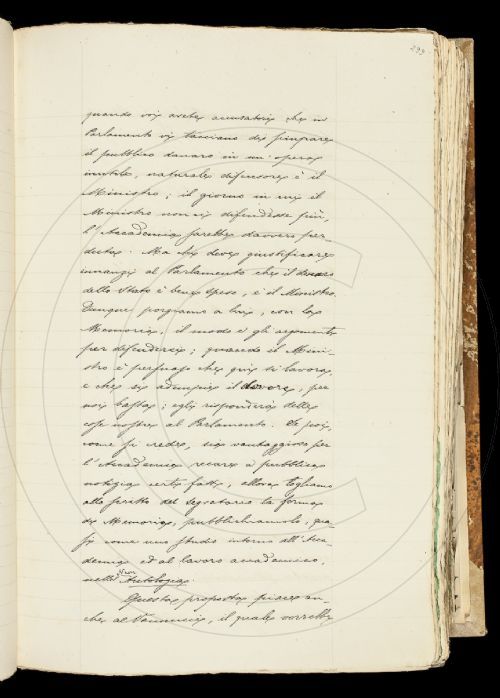 299
quando voi avete accusatori che in
Parlamento vi tacciano di sciupare
il pubblico danaro in un' opera
inutile, naturale difensore è il
Ministro; il giorno in cui il
Ministro non vi difendesse più,
l'Accademia sarebbe davvero per-
duta. Ma chi deve giustificare
innanzi al Parlamento che il denaro
dello Stato è bene speso, è il Ministro.
Dunque porgiamo a lui, con la
Memoria, il modo e gli argomenti
per difendersi; quando il Mini-
stro è persuaso che qui si lavora,
e che si adempie il dovere, per
noi basta; egli risponderà delle
cose nostre al Parlamento. Se poi,
come si crede, sia vantaggioso per
l'Accademia recare a pubblica
notizia certi fatti, allora togliamo
allo scritto del Segretario la forma
di Memoria, pubblichiamolo, qua-
si come uno studio intorno all'Acca-
demia ed al lavoro accademico,
nella Nuova Antologia.
Questa proposta piace an-
che al Vannucci, il quale vorrebbe